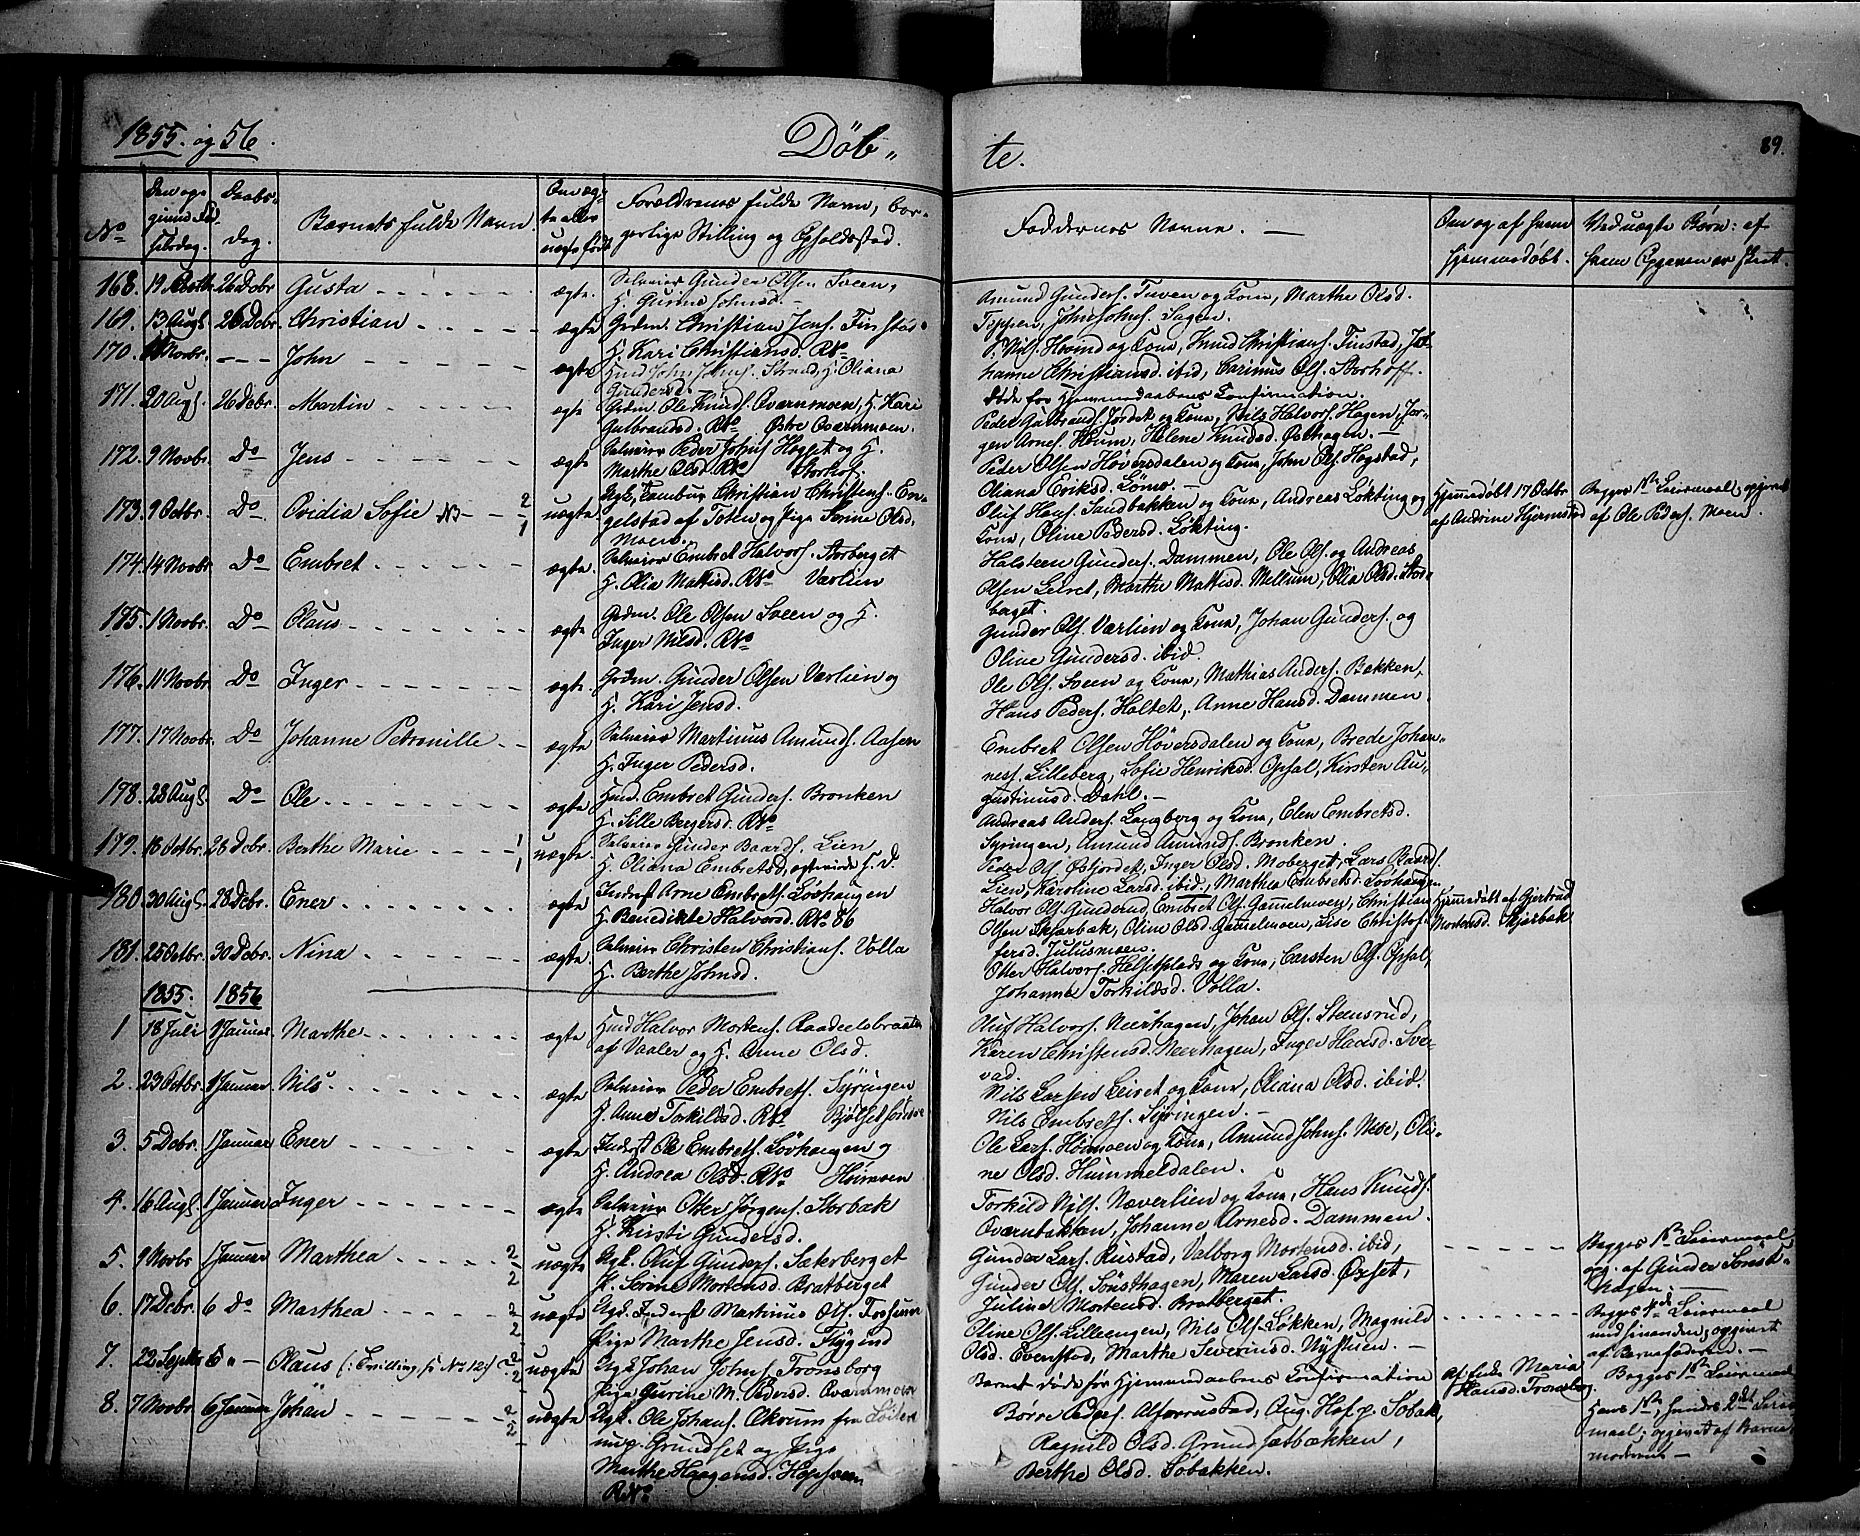 1855 og 56.
Döb„
te.
89.
No
Den opgivne Fødselsdag.
Daabsdag.
Barnets fulde Navn.
Om ægte eller uægte født
Forældrenes fulde Navn, borgerlige Stilling og Opholdssted.
Faddernes Navne. —
Om og af hvem hjemmedøbt.
Ved uægte Børn: af hvem Opgaven er skeet.
168. 26 Dcbr Gusta ægte. Selveier Gunder Olsen Sveen,
Amund Gunders. Tuven og Kone, Marthe Olsd.
169. 13 Augs. 26 Dcbr. Christian ægte Grdm. Christian Jens. Finstad
H. Kari Christiansd.
P. Nils. Hovind og Kone, Knud Christians. Finstad, Johanne Christiansd. ibid, Carinus Ols. Storhoff.
170. Novbr. --- John ægte Hmd John Johns. Strand, H. Oliana Gundersd.
Døde før Hjemmedaabens Confirmation.
171. 20 Augs. 26 Dcbr. Martin ægte Grdm. Ole Knuds. Qvernmoen, H. Kari
Gulbrandsd. Østre Qvernmoen.
Peder Gulbrands. Jordet og Kone, Nils Halvors. Hagen, Jørgen Arnes. Houm, Helene Knudsd. Østhagen. —
172. 9 Novbr. Do Jens ægte Selveier Peder Johns. og H.
Marthe Olsd. Storhof.
Peder Olsen Høversdalen og Kone, John Ols. Hogstad,
Oliana Eriksd. —
173. 9 Octbr. Do Ovidia Sofie NB 2/1 uægte Ugk. Tambur Christian Christians. Engelstad af Toten og Pige Olsd. Moen.
Oluf Hans. Sandbakken og Kone, Andreas Løkting og
Kone, Oline Pedersd. Løkting.
Hjemmedøbt 17 Octbr af Andrine Hjermstad
Begges 1ste Leiermaal, opgivet af Ole Peders. Moen.
174. 14 Novbr. Do Embret ægte. Selveier Embret Halvors. Storberget
H. Olia Mathisd. Værlien
Halsteen Gunders. Dammen, Ole Ols. og Andreas
Olsen Leiret, Marthe Mathisd. Mellum, Olia Olsd. Storberget.
175. 1 Novbr. Do Olaus ægte Grdm. Ole Olsen Sveen og H.
Inger Nilsd.
Gunder Ols. Værlien og Kone, Johan Gunders. og
Oline Gundersd. ibid.
176. 11 Novbr Do Inger ægte. Grdm. Gunder Olsen Værlien og
H. Kari Jensd.
Ole Ols. Sveen og Kone, Mathias Anders. Bakken,
Hans Peders. Haltet, Anne Hansd. Dammen.
177. 17 Novbr. Do Johanne Petronille ægte Selveier Martinus Amunds. Aasen
H. Inger Pedersd.
Embret Olsen Høversdalen og Kone, Brede Johannes. Lilleberg, Sofie Henriksd. Opsal, Kirsten Augustinusd. Dahl. —
178. 28 Augs. Do Ole ægte Hmd. Embret Gunders. Bronken
H. Sille Bergersd.
Andreas Anders. Langberg og Kone, Elen Embretsd.
Syringen, Amund Amunds. Bronken.
179. 18 Octbr. 28 Dcbr. Berthe Marie 1/1 uægte. Selveier Gunder Baards. Lien
H. Oliana Embretsd,
Peder Ols. Østjordet, Inger Olsd. Moberget, Lars Baards.
Lien, Karoline Larsd. ibid., Marthea Embretsd. Løvhaugen
180. 30 Augs. 28 Dcbr. Ener ægte Inderst Arne Embrets. Løvhaugen
H. Benedikte Halvorsd. 86
Halvor Ols. Gunderud, Embret Ols. Gammelmoen, Christian
Olsen Skjærbæk, Oline Olsd. Gammelmoen, Lise Christoffersd. Juliusmoen.
Hjemmedøbt af Gjertrud Mortensd. Skjærbæk
181. 25 Octbr. 30 Dcbr. Nina ægte. Selveier Christen Christians. Volla
H. Berthe Johnsd.
Otter Halvors. Helsetplads og Kone, Carsten Ols. Opsal,
Johanne Torkildsd. Volla.
1855. 1856
1 18 Juli 1 Januar Marthe ægte Hmd Halvor Mortens. Raadeelsbraaten
af Vaaler og H. Anne Olsd.
Oluf Halvors. Neerhagen, Johan Ols. Steensrud,
Karen Christensd. Neerhagen, Inger Hansd.
2. 23 Octbr. 1 Januar Nils ægte Selveier Peder Embrets. Syringen
H. Anne Torkildsd.
Nils Larsen Leiret og Kone, Oliana Olsd. ibid.
Nils Embrets. Syringen. —
3. 5 Dcbr. 1 Januar Ener ægte Inderst Ole Embrets. Løvhaugen og
H. Andrea Olsd. Høimoen
Ole Lars. Høimoen og Kone, Amund Johns. Næse, Oline Olsd. Hummeldalen.
4. 16 Augs. 1 Januar Inger ægte Selveier Otter Jørgens. Storbæk
H. Kirsti Gundersd.
Torkild Nils. Næverlien og Kone, Hans Knuds.
Qvernbakken, Johanne Arnesd. Dammen.
5. 9 Novbr 1 Januar Marthea 2/2 uægte Ugk. Oluf Gunders. Sæterberget
P. Serene Mortensd. Bratberget
Gunder Lars. Rustad, Valborg Mortensd. ibid,
Gunder Ols. Sønsthagen, Maren Larsd. Oxset,
Juline Mortensd. Bratberget.
Begges 1ste Leiermaal opg. af Gunder Sønsthagen. —
6. 17 Dcbr. 6 Do Marthea 2/2 uægte Ugk. Inderst Martinus Ols.
Pige Marthe Jensd. Flygind
Oline Ols. Lilleengen, Nils Ols. Løkken, Magnild
Olsd. Evenstad, Marthe Severinsd. Nystuen. —
Begges Leiermaal med hinanden; opgivet af Barnefaderen. —
7. 22 Septbr 6 " — Olaus (: Tvilling, s No 12:) 2/2 uægte Ugk. Johan Johns. Tronsborg
Pige Gurine M. Pedersd. Qvernmoen
Barnet døde før Hjemmedaabens Confirmation
Maria Hansd. Tronsborg.
Begges 1ste Leiermaal
8. 7 Novbr. 6 Januar Johan 2/2 uægte Ugk. Ole Johans. Økrum fra Løiten
Grundset og Pige
Marthe Haagensd. Hopsveen
Børre Peders. Alfarrustad, Aug. Hof p. Sobak,
Ragnild Olsd. Grundsætbækken,
Berthe Olsd. Sobakken.
Hans 1ste, hendes 2det Leiermaal; opgivet af Barnemoderen —